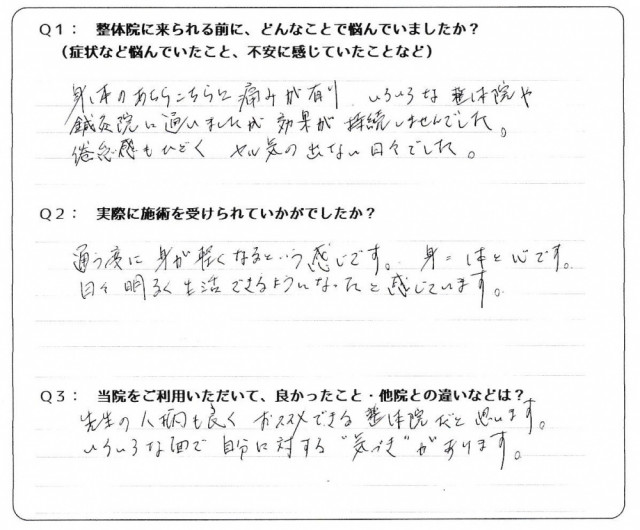 Q1： 整体院に来られる前に、どんなことで悩んでいましたか？
（症状など悩んでいたこと、不安に感じていたことなど）
身体のあちらこちらに痛みが有り いろいろな整体院や
鍼灸院に通いましたが 効果が 持続しませんでした。
倦怠感もひどく ヤル気の出ない日々でした。
Q2： 実際に施術を受けられていかがでしたか？
通う度に 身が軽くなるという感じです。 身＝体と心です。
日々 明るく生活できるようになったと感じています。
Q3： 当院をご利用いただいて、良かったこと・他院との違いなどは？
先生の人柄も良く おススメできる整体院だと思います。
いろいろな面で 自分に対する“気づき”があります。